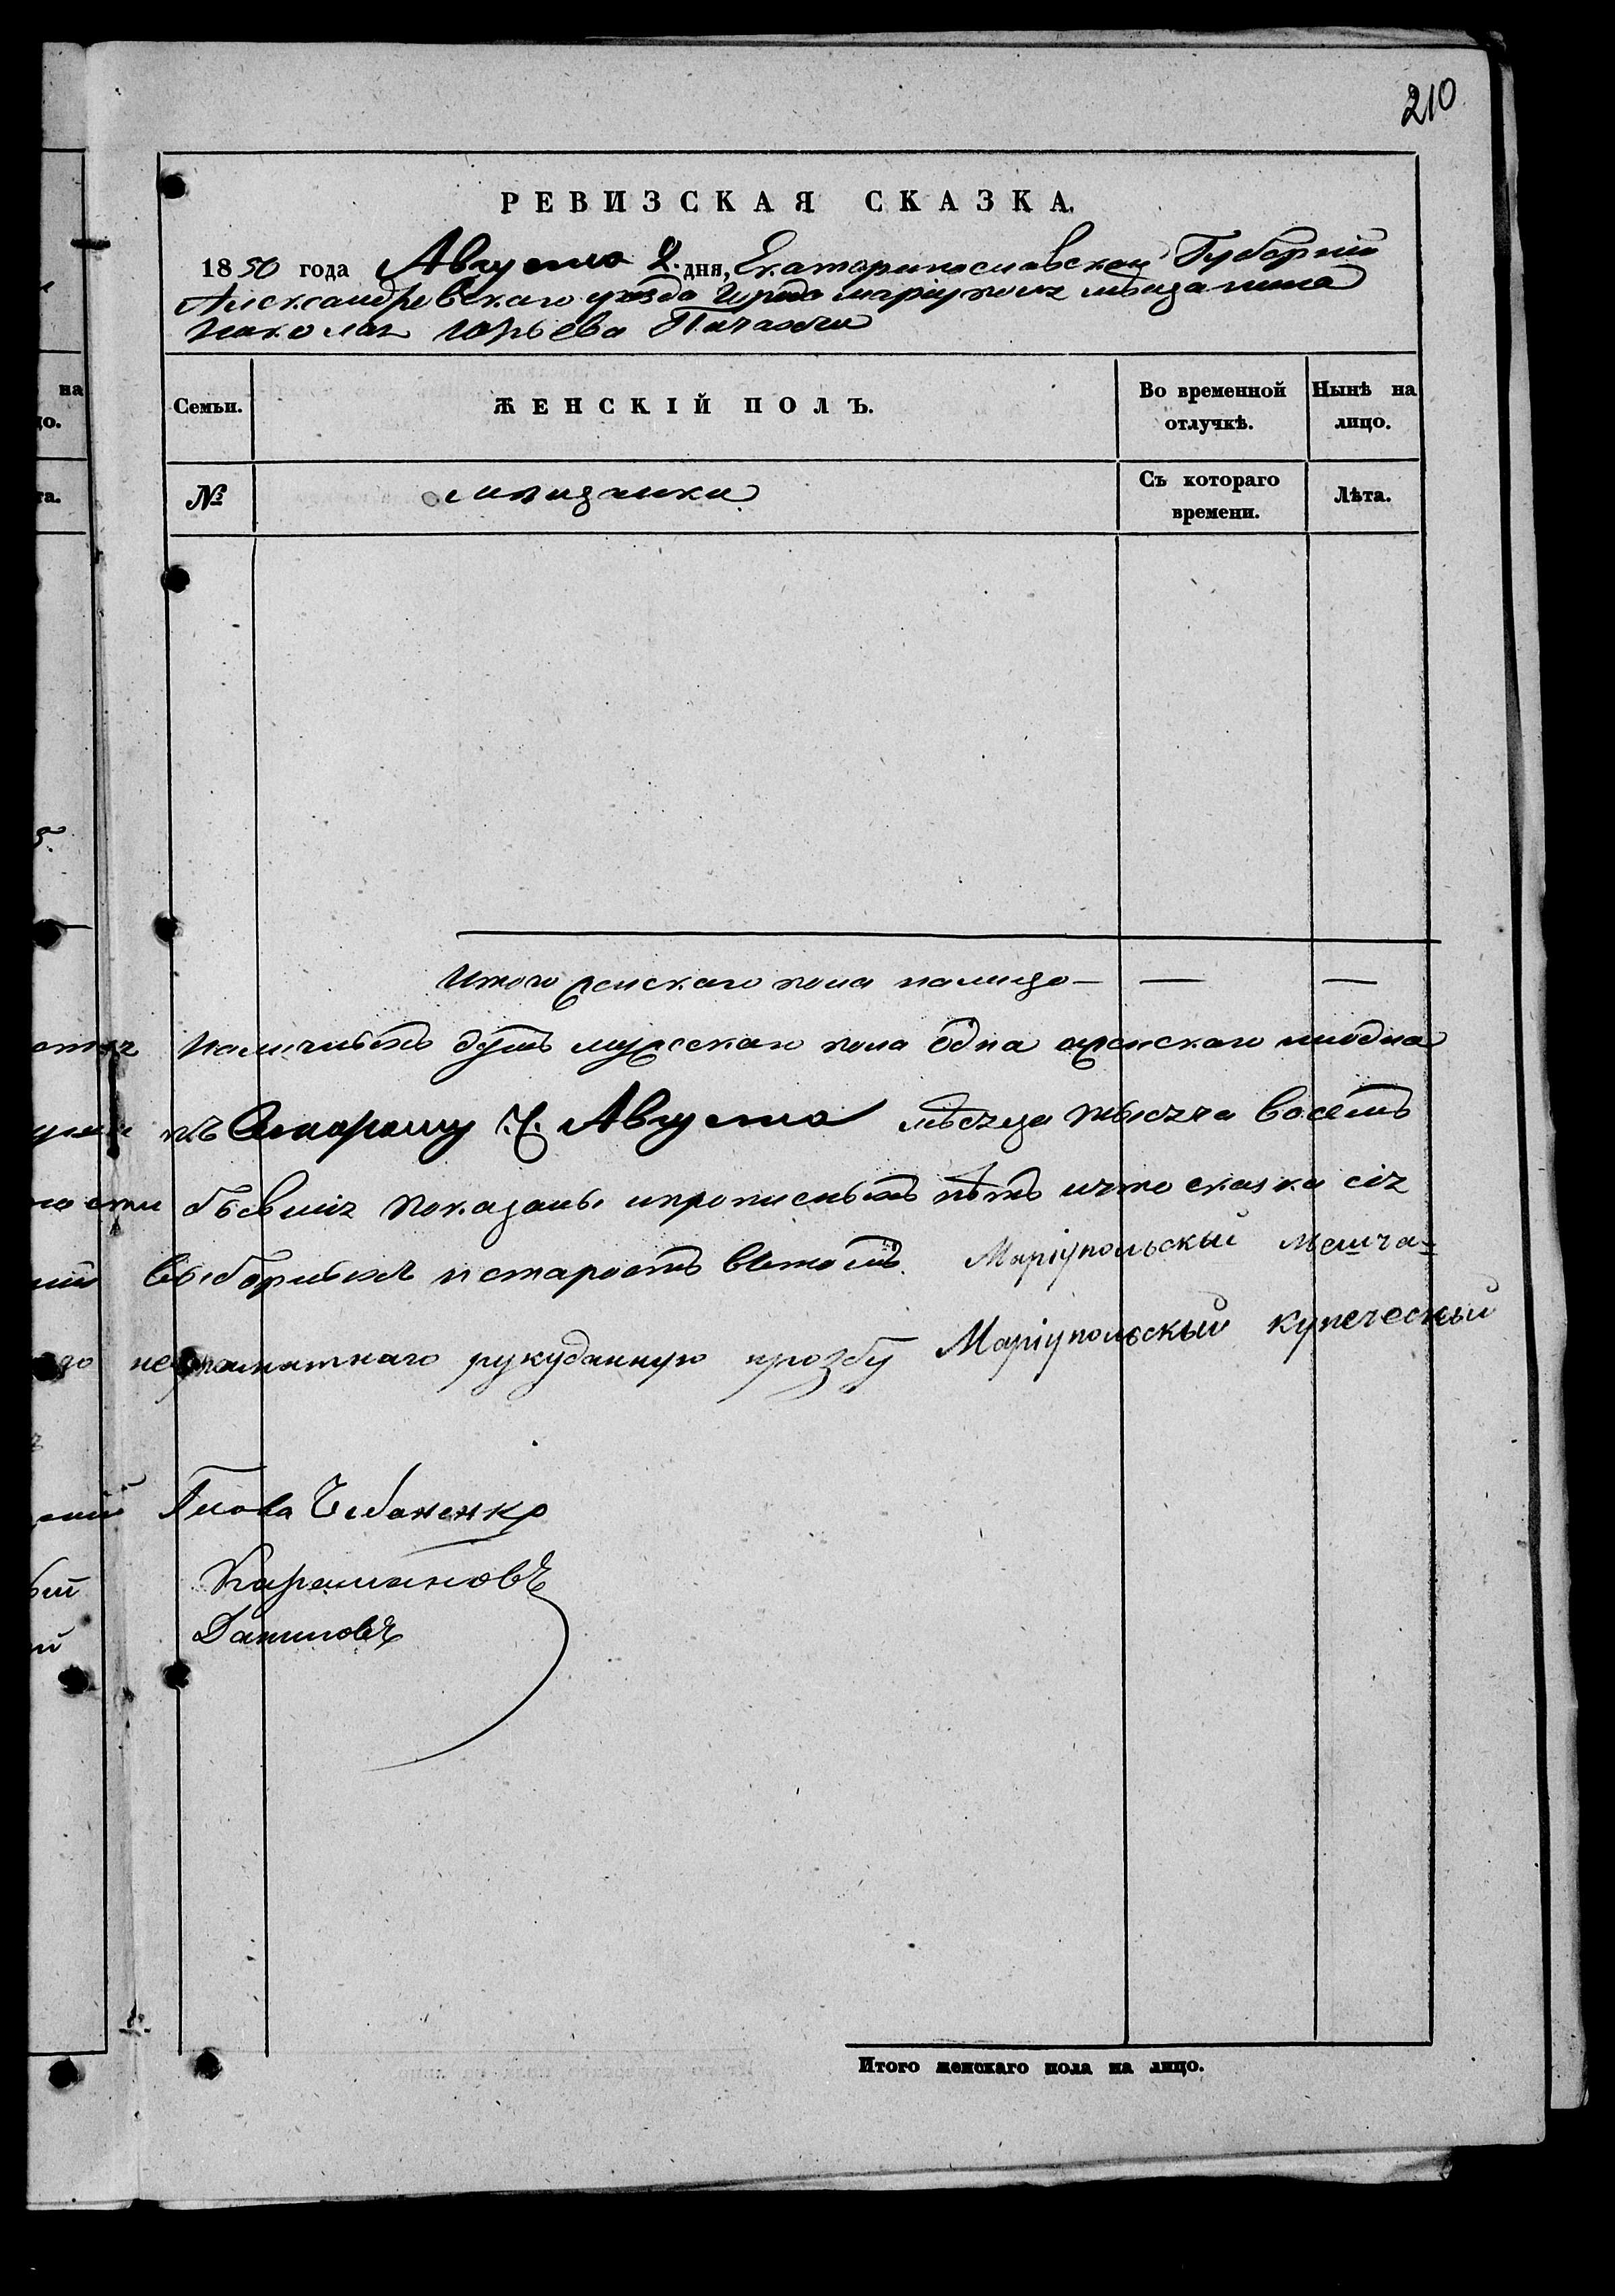 210
РЕВИЗСКАЯ СКАЗКА.
1850 года Августа 2. дня, Екатеринославской Губерніи
Александровскаго уезда Города маріуполя мѣщанина
Николая Юрьева
на
Семьи. ЖЕНСКІЙ ПОЛЪ. Во временной отлучкѣ. Нынѣ на лицо.
№ мѣщанки Съ котораго времени. Лѣта.
Итого женскаго пола налицо — — —
наличныхъ душъ мужескаго пола одна аженскаго ниодна
Второму ч. Августа мѣсяца тысяча восемъ
показаны ипрописныхъ нѣтъ ичто сказка сія
Маріупольскый мешча-
неграматнаго рукуданную прозбу Маріупольскый купеческый
Глова Чебаненко
Карамановъ
Даниловъ
Итого женскаго пола на лицо.